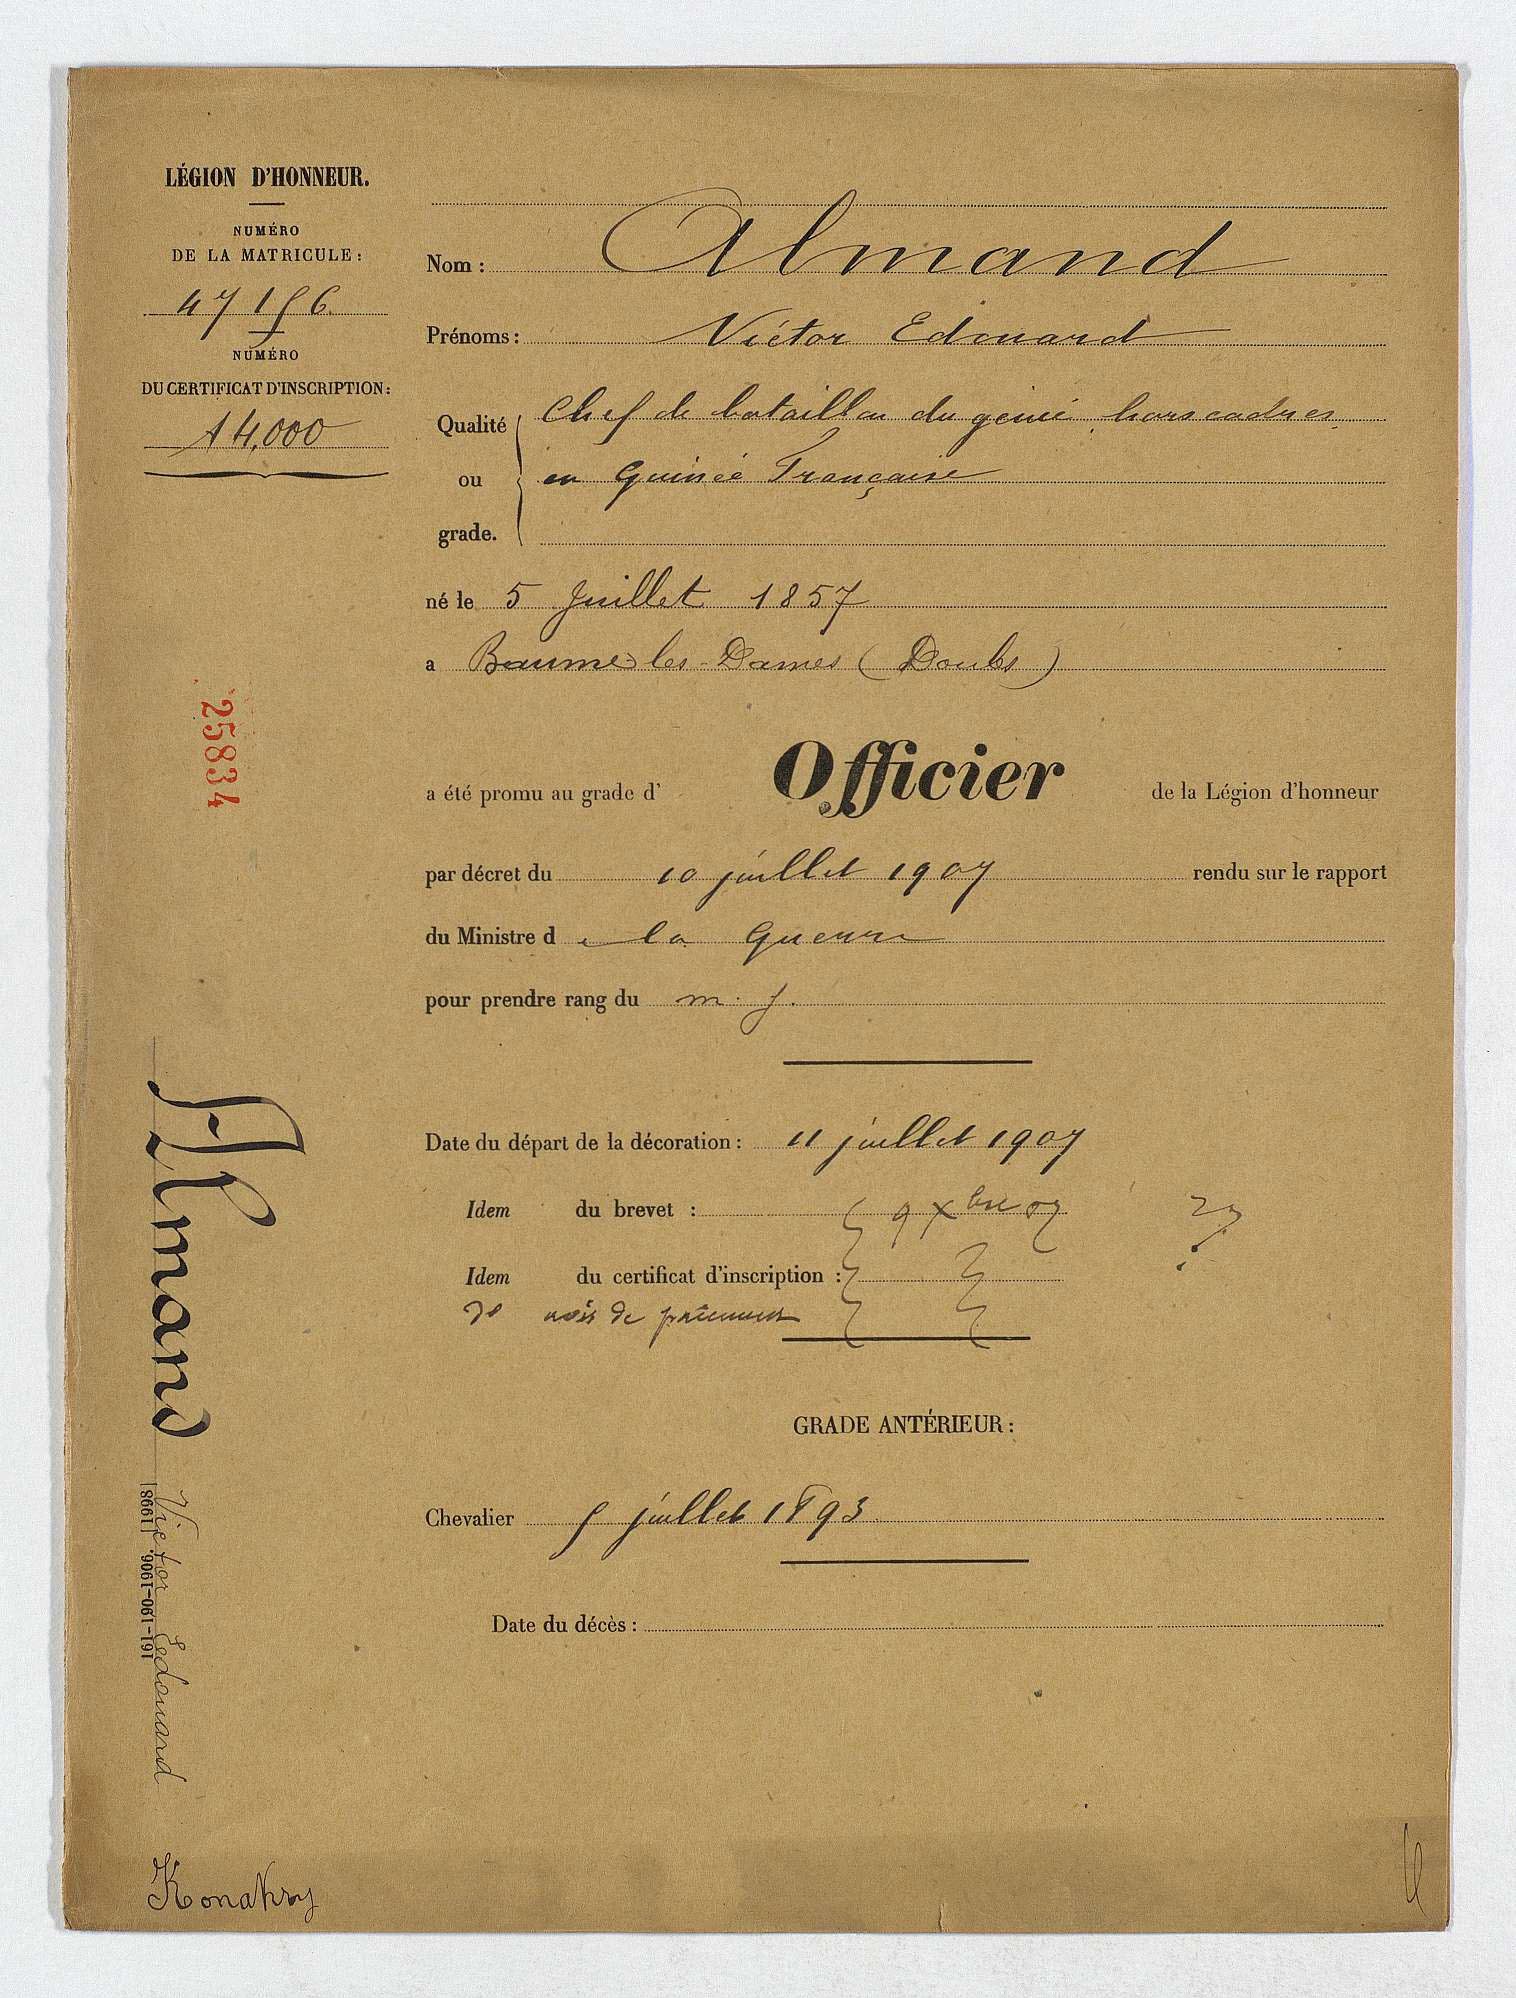 LÉGION D'HONNEUR.
NUMÉRO
DE LA MATRICULE:
47156
NUMÉRO
DU CERTIFICAT D'INSCRIPTION:
14,000
Nom: Almand
Prénoms: Victor Edouard
Qualité ou grade. Chef de bataillon du génie hors cadres
en Guinée Française
né le 5 Juillet 1857
a Baume les-Dames (Doubs)
25834
a été promu au grade d' Officier de la Légion d'honneur
par décret du 10 juillet 1907 rendu sur le rapport
du Ministre de la Guerre
pour prendre rang du m. j.
Date du départ de la décoration: 11 juillet 1907
Idem du brevet: 9 Xbre 07
Idem du certificat d'inscription:
do avis de paiement
GRADE ANTÉRIEUR:
Chevalier 5 juillet 1893
Date du décès:
Almand
Victor Edouard
161-190-1906. [1998]
Konakry